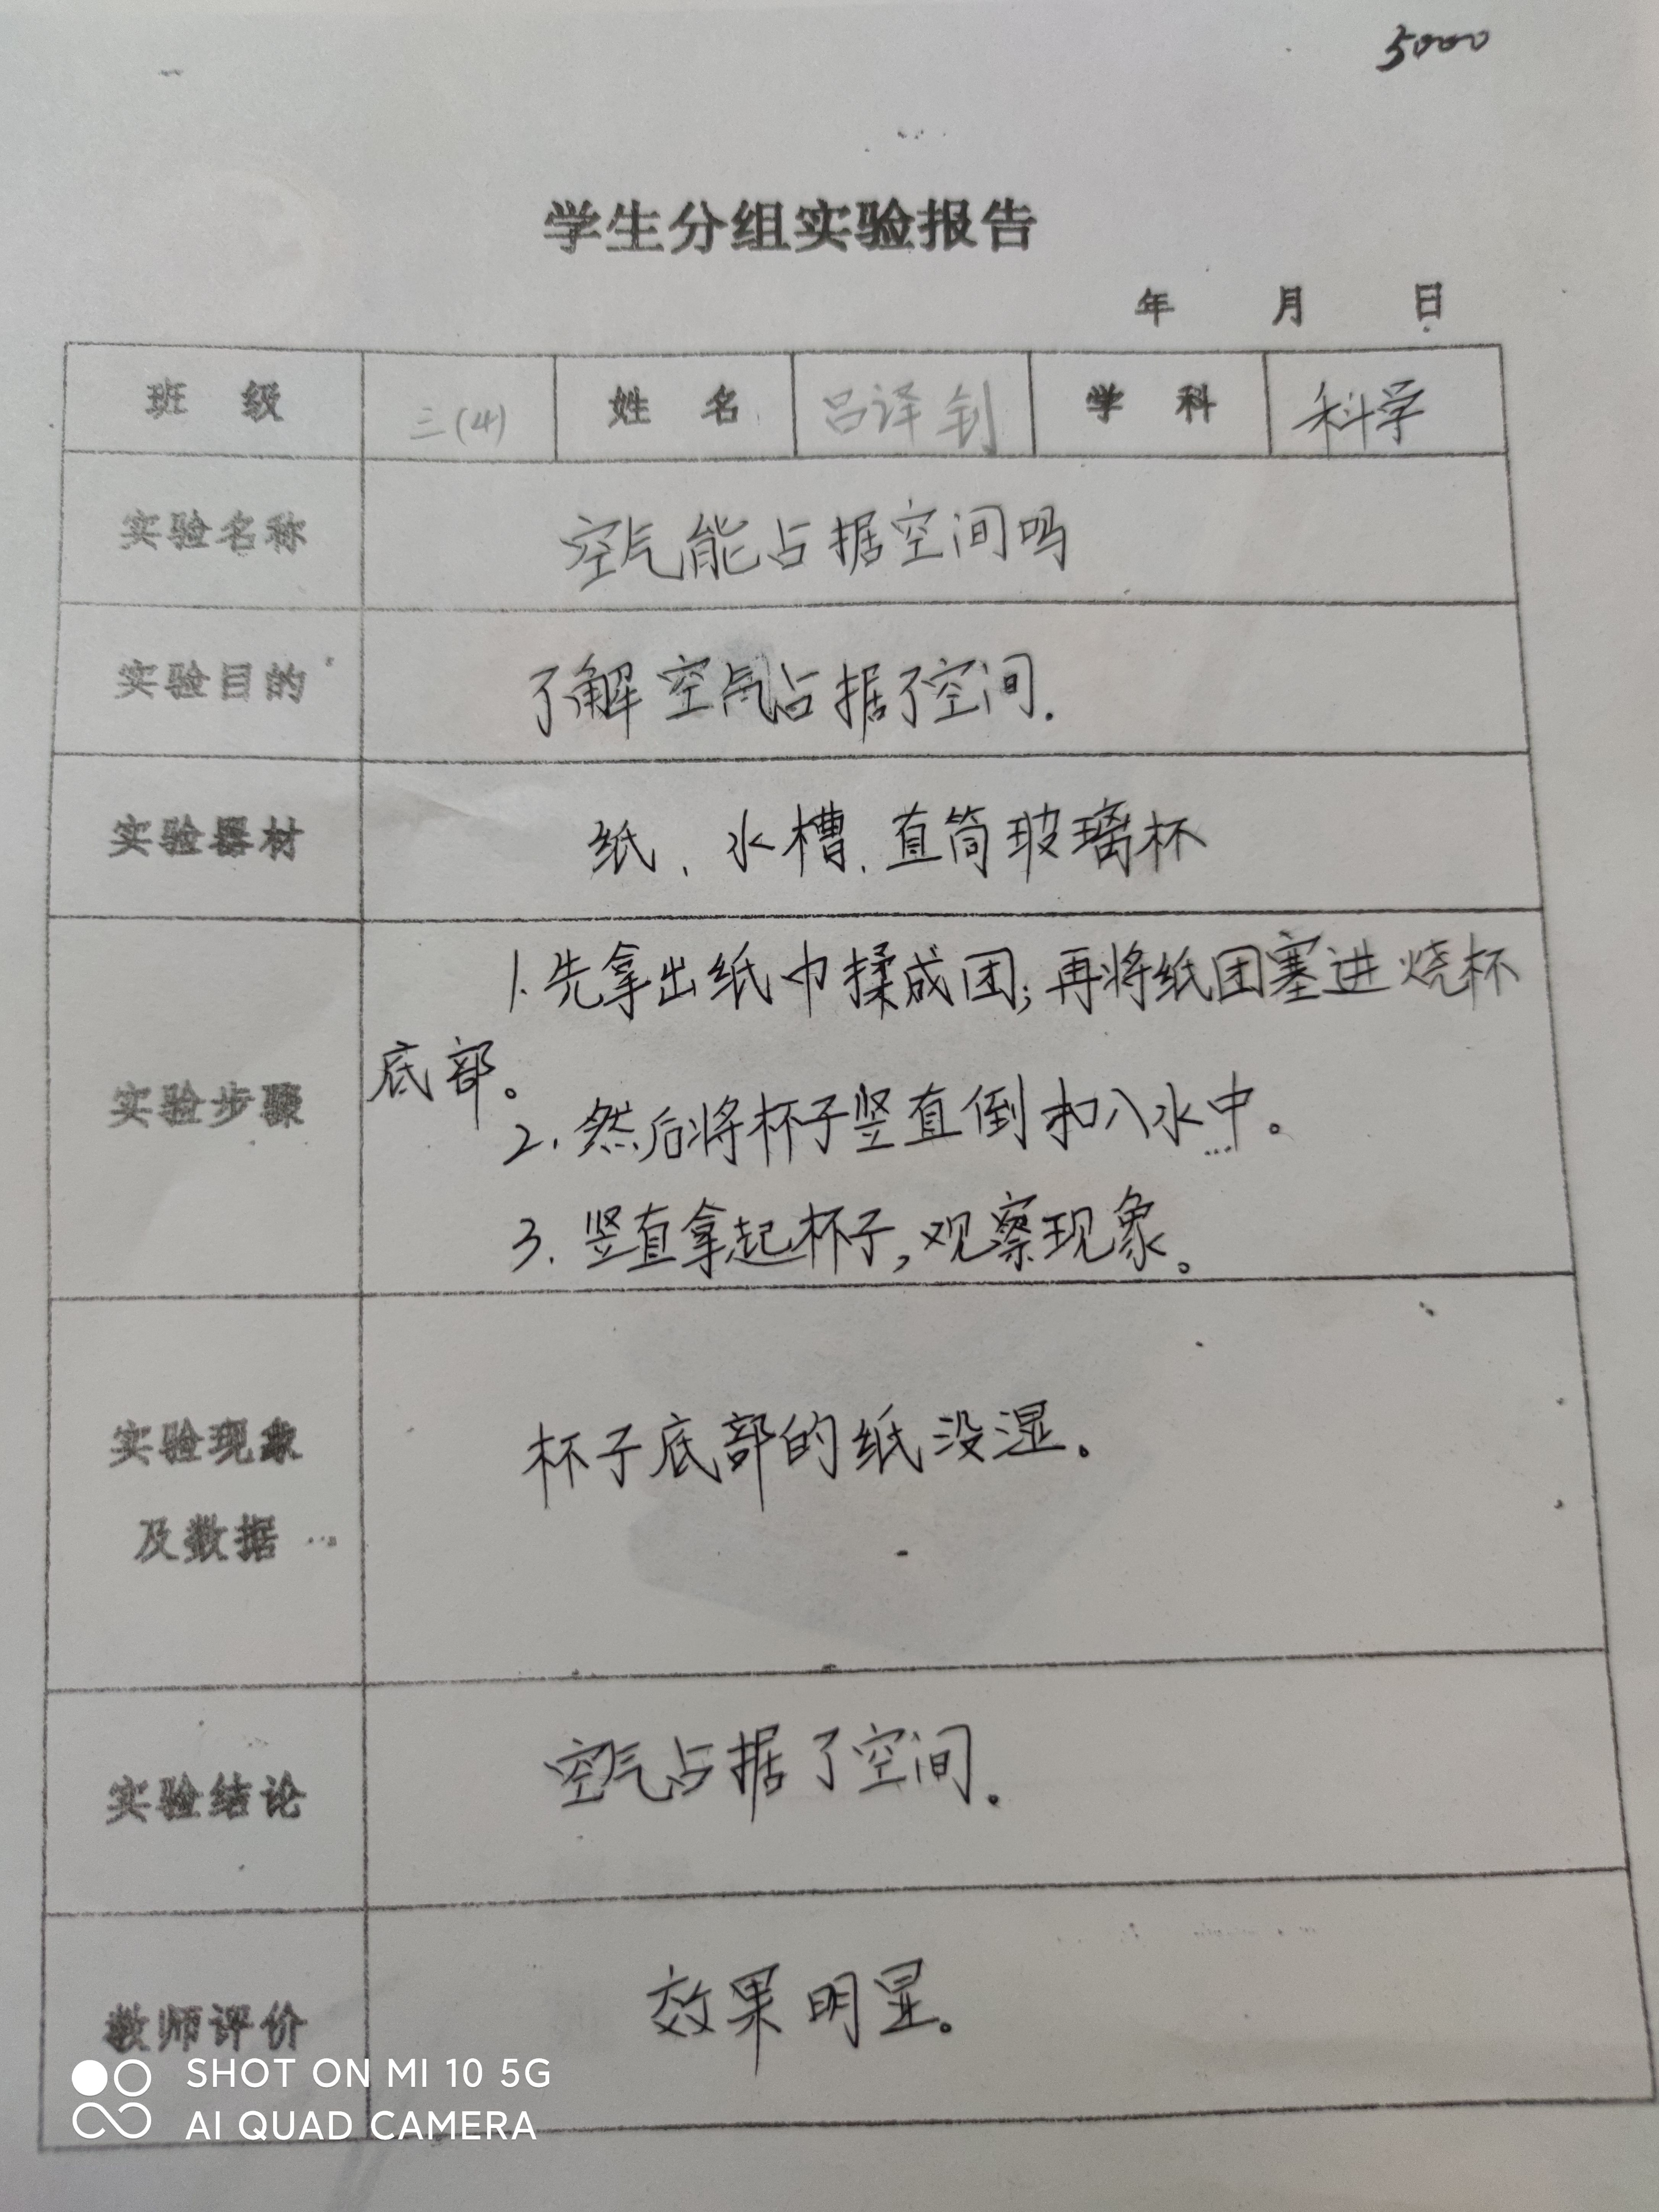 5000
学生分组实验报告
年 月 日
班 级 三(4) 姓 名 吕译钊 学 科 科学
实验名称 空气能占据空间吗
实验目的 了解空气占据了空间.
实验器材 纸、水槽、直筒玻璃杯
1.先拿出纸巾揉成团;再将纸团塞进烧杯
底部。
实验步骤
2.然后将杯子竖直倒扣入水中。
3.竖直拿起杯子,观察现象。
实验现象
及数据
杯子底部的纸没湿。
实验结论 空气占据了空间.
教师评价 效果明显。
SHOT ON MI 10 5G
AI QUAD CAMERA